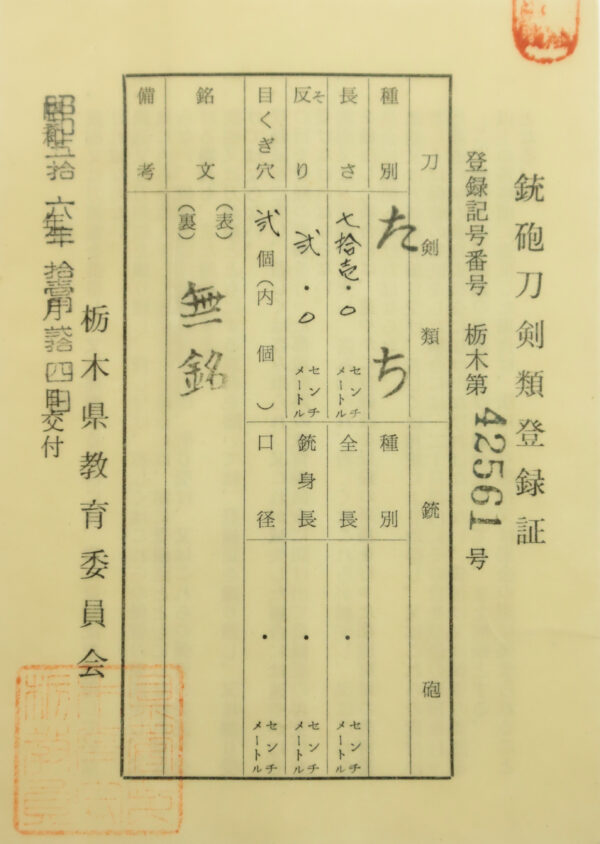 銃砲刀剣類登録証
登録記号番号 栃木第 42561 号
刀剣類 銃砲
種別 たち 種別
長さ 七拾壱・〇 センチメートル 全長 ・ センチメートル
反り そ 弐・〇 センチメートル 銃身長 ・ センチメートル
目くぎ穴 弐個(内 個) 口径 ・ センチメートル
銘文 (表) 無銘
(裏)
備考
栃木県教育委員会
昭和五拾六年拾壹月弐拾四日交付